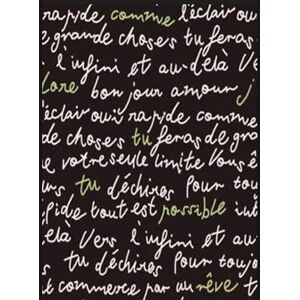 rapide comme l'éclair ou
e grande choses tu feras
l'infini et au-delà Ve
lore bon jour amour j
'éclair oui rapide comme
de choses tu feras de gra
e votre seule limite Vous ê
urs tu déchires pour touj
pide tout est possible int
elà Vers l'infini et au
s tu déchires pour toujo
t commerce par un rêve t